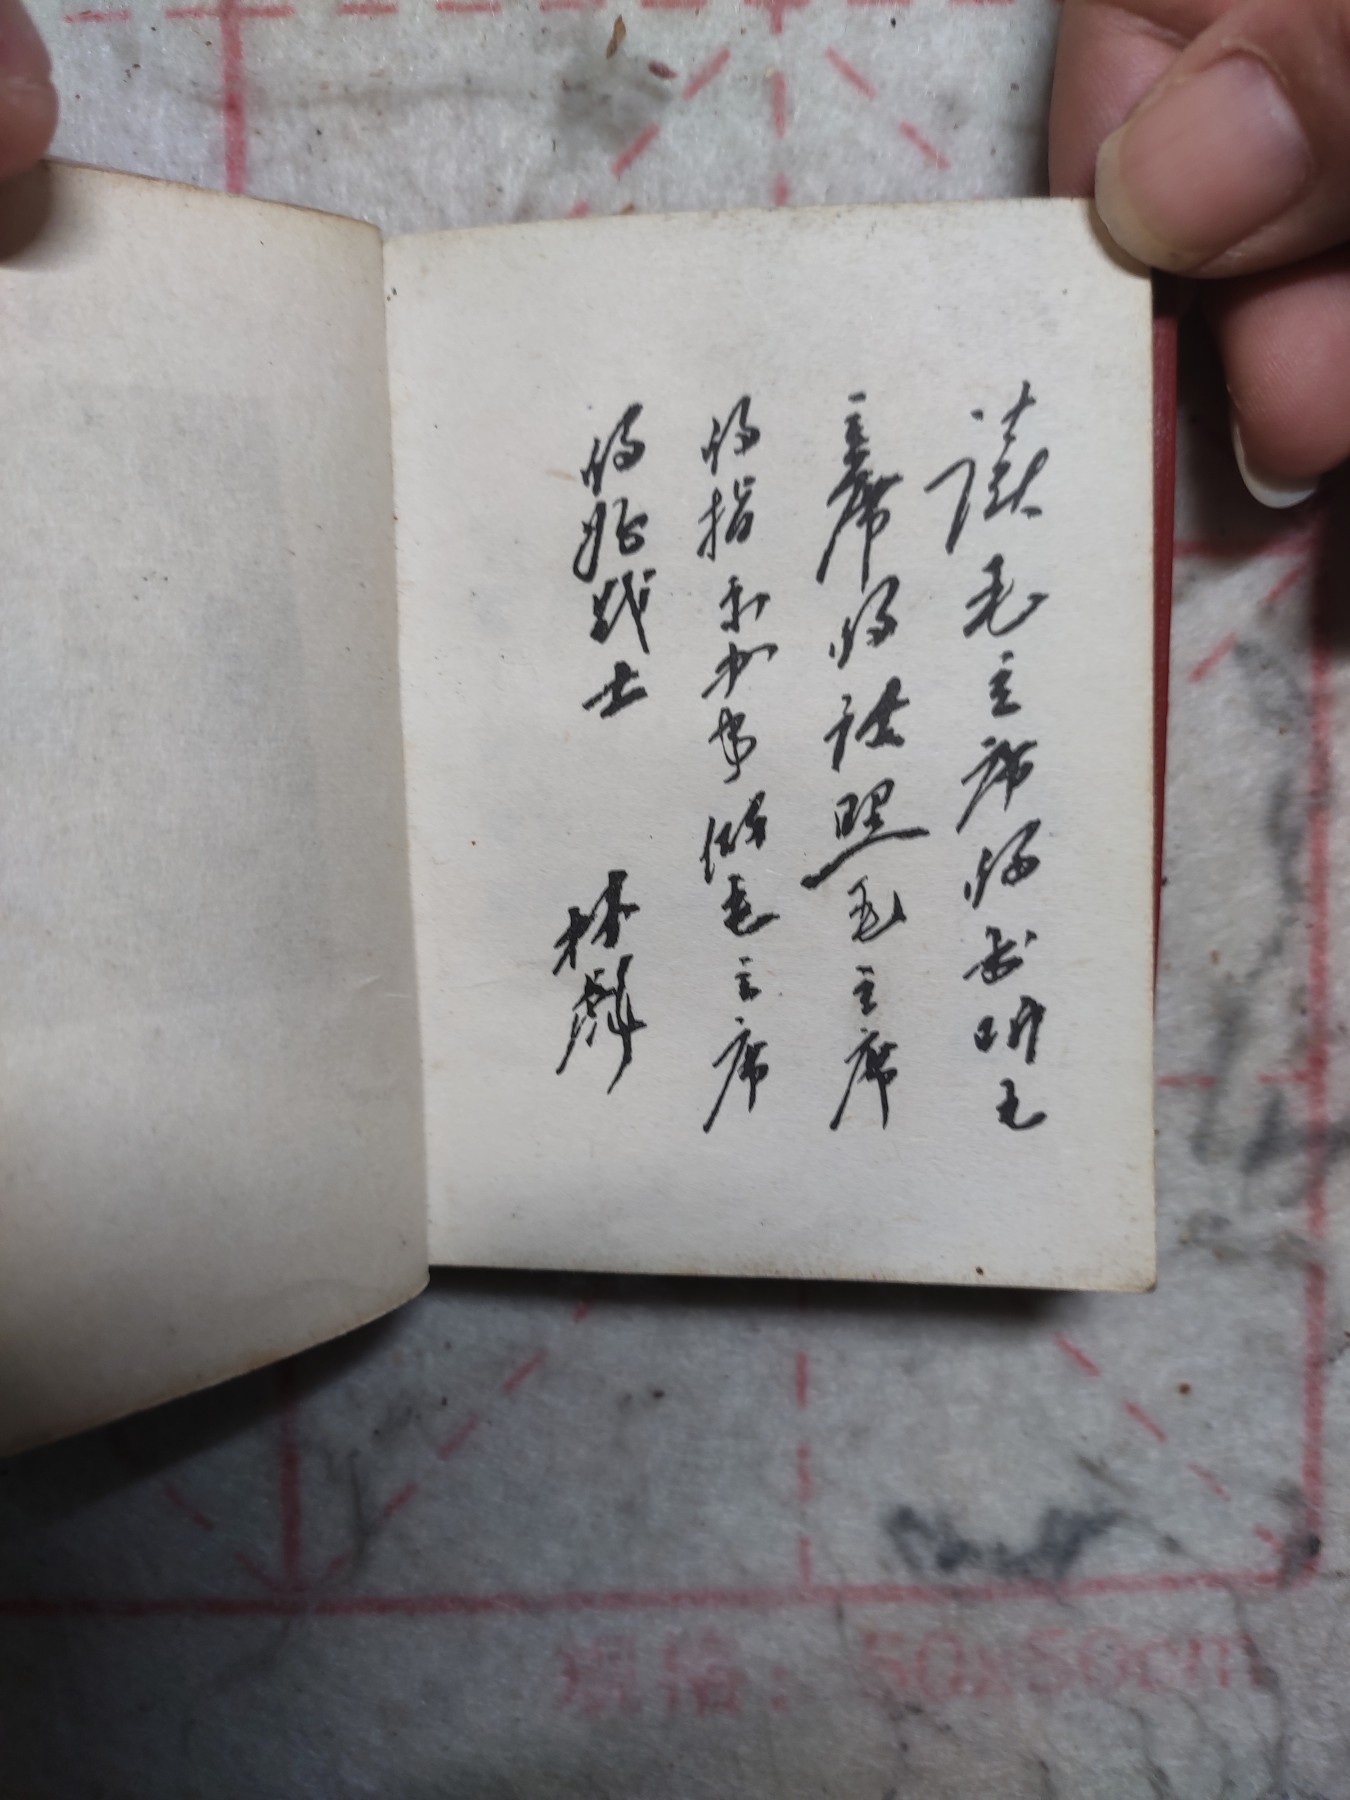 读毛主席的书听毛
主席的话照毛主席
的指示办事做毛主席
的好战士 林彪
规格：50x50cm